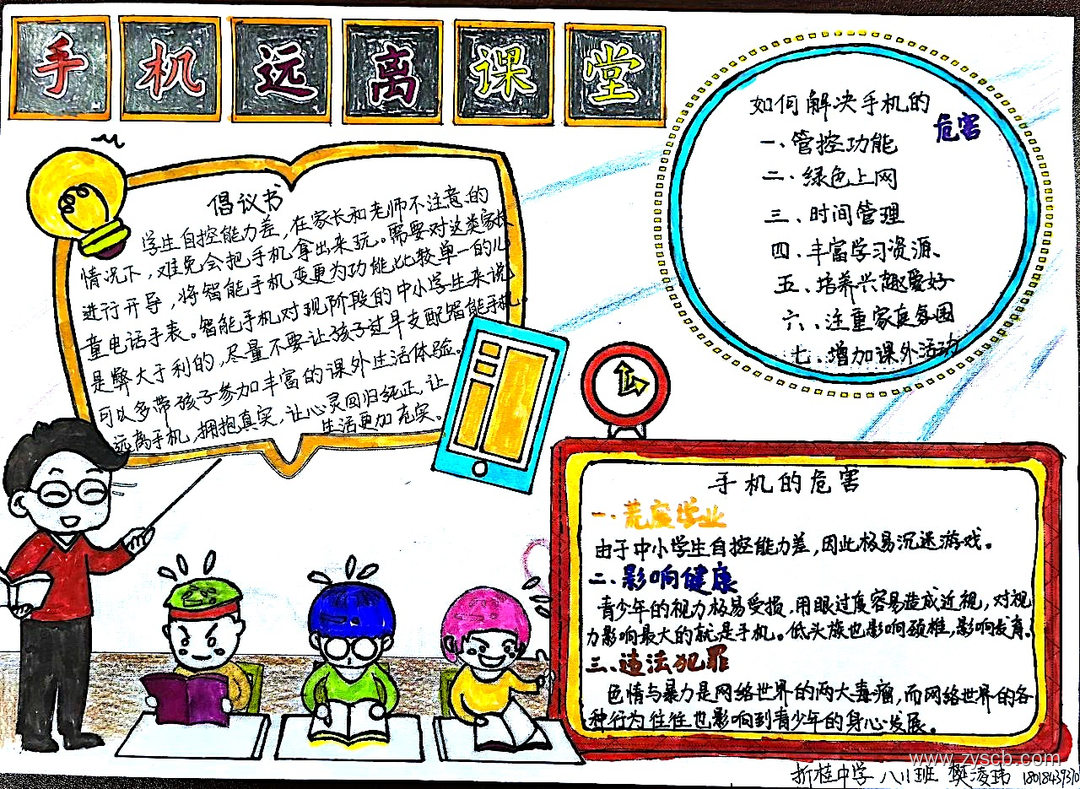 手机远离课堂
倡议书
学生自控能力差,在家长和老师不注意的
情况下,难免会把手机拿出来玩。需要对这类家长
进行开导,将智能手机变更为功能比较单一的儿
童电话手表。智能手机对现阶段的中小学生来说
是弊大于利的,尽量不要让孩子过早支配智能手机。
可以多带孩子参加丰富的课外生活体验。
远离手机,拥抱真实,让心灵回归纯正,让
生活更加充实。
如何解决手机的
危害
一、管控功能
二、绿色上网
三、时间管理
四、丰富学习资源、
五、培养兴趣爱好
六、注重家庭氛围
七、增加课外活动
手机的危害
一、荒废学业
由于中小学生自控能力差,因此极易沉迷游戏。
二、影响健康
青少年的视力极易受损,用眼过度容易造成近视,对视
力影响最大的就是手机。低头族也影响颈椎,影响发育。
三、违法犯罪
色情与暴力是网络世界的两大毒瘤,而网络世界的各
种行为往往也影响到青少年的身心发展。
www.zyscb.com
折桂中学 八11班 樊凌玮